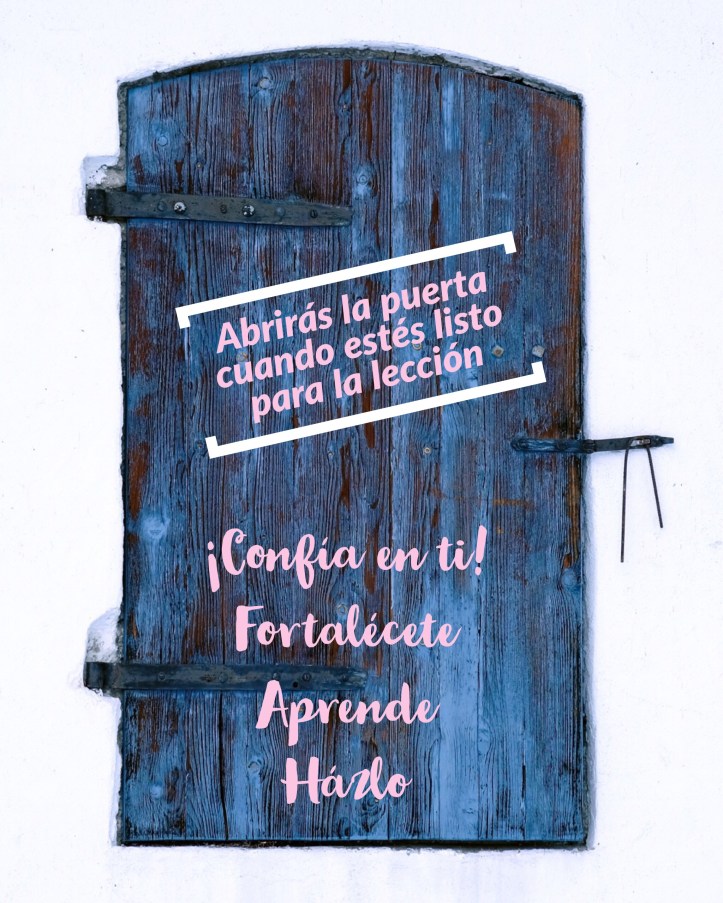 Abrirás la puerta
cuando estés listo
para la lección
¡Confía en ti!
Fortalécete
Aprende
Házlo